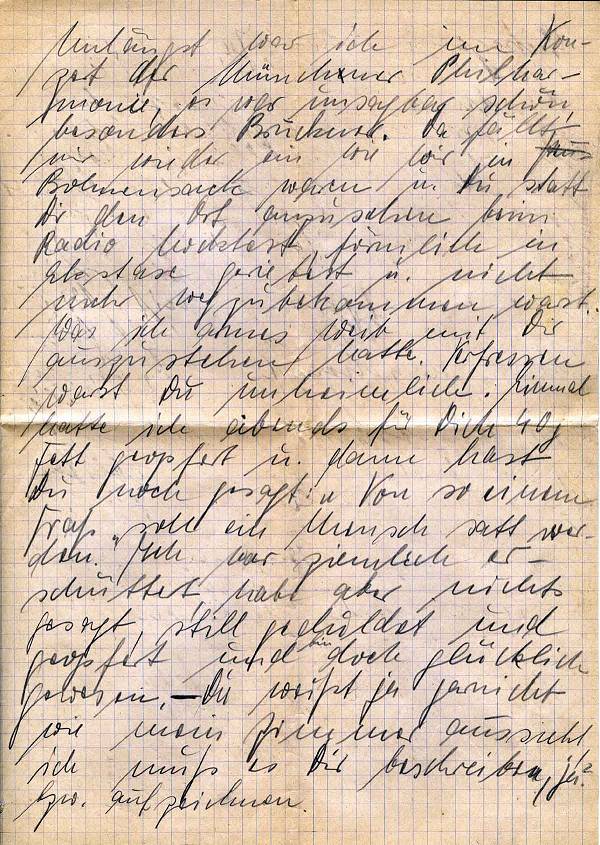 Unlängst war ich im Kon-
zert der Münchner Philhar-
monie, es war unsagbar schön,
besonders Bruckner. Da fällt
mir wieder ein wie wir in
waren u. Du statt
Dir den Ort anzusehen beim
Radio hocktest, förmlich in
Ekstase gerietest u. nicht
mehr wegzubekommen warst.
Was ich armes Weib mit Dir
auszustehen hatte. Verfressen
warst Du unheimlich. Einmal
hatte ich abends für Dich 40 g
Fett geopfert u. dann hast
Du noch gesagt: „Von so einem
Fraß soll ein Mensch satt wer-
den." Ich war ziemlich er-
schüttert habe aber nichts
gesagt, still geduldet und
geopfert und bin doch glücklich
gewesen. — Du weißt ja garnicht
wie mein Zimmer aussieht
ich muß es Dir beschreiben, ja?
bzw. aufzeichnen.